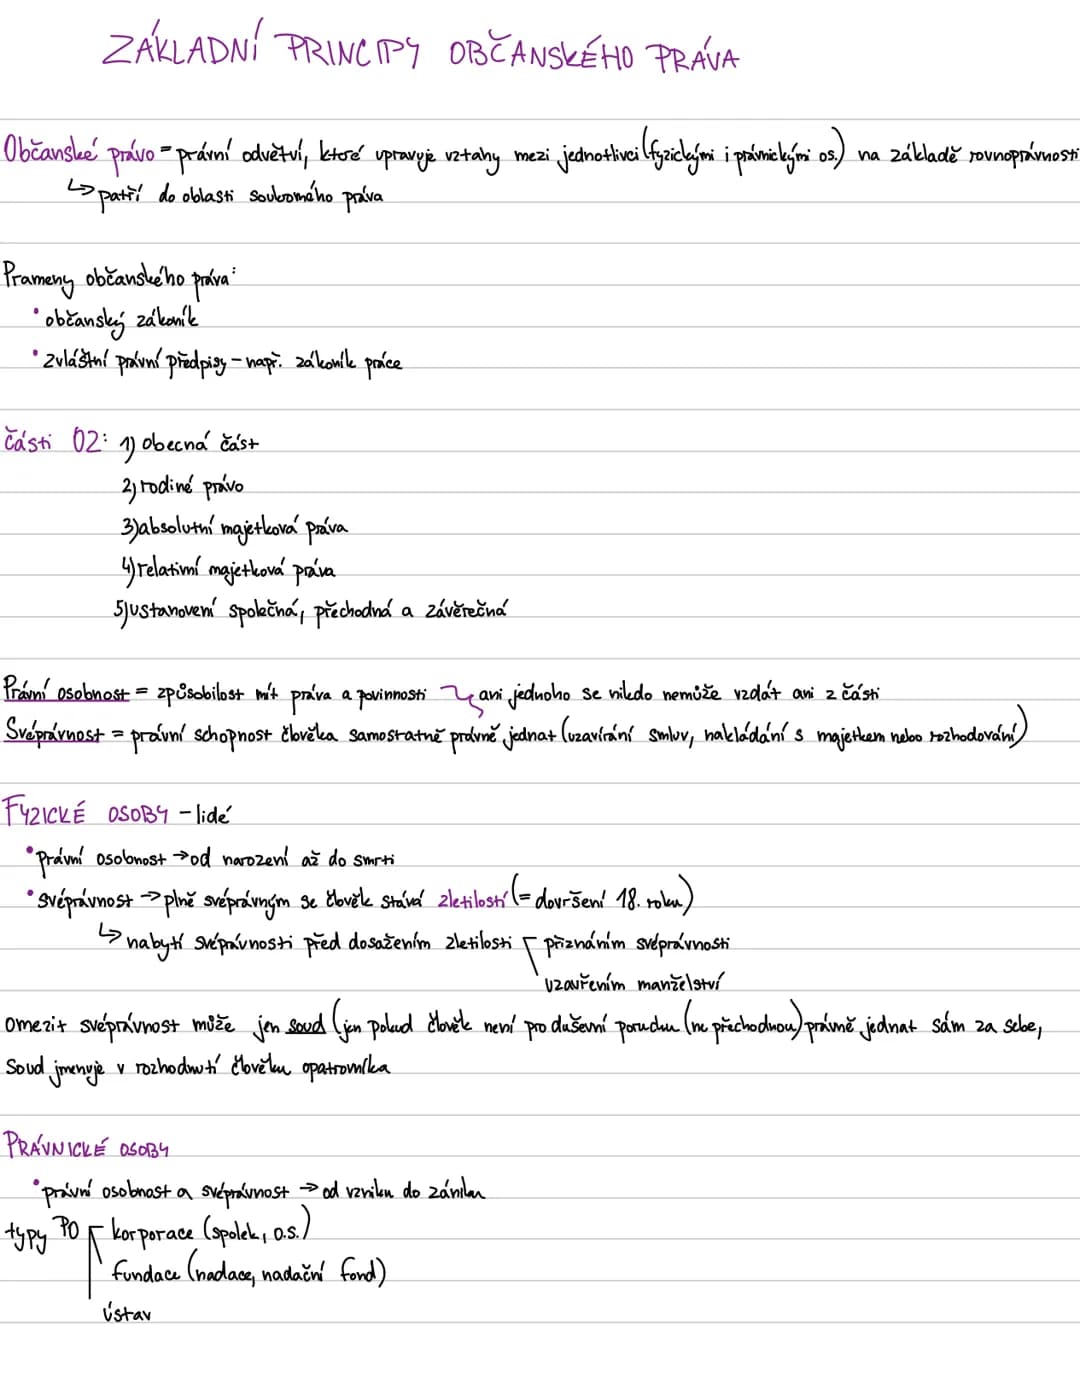 ZÁKLADNÍ PRINCIPY OBČANSKÉHO PRÁVA
Občanské právo = právní odvětví, které upravuje vztahy mezi jednotlivci (fyzickými i právnickými os.) na základě rovnoprávnosti
↳ patří do oblasti soukromého práva
Prameny občanského práva:
• občanský zákoník
• zvláštní právní předpisy - např. zákoník práce
části OZ: 1) obecná část
2) rodiné právo
3) absolutní majetková práva
4) relativní majetková práva
5) ustanovení společná, přechodná a závěrečná
Právní osobnost = způsobilost mít práva a povinnosti ani jednoho se nikdo nemůže vzdát ani z části
Svéprávnost = právní schopnost člověka samostatně právně jednat (uzavírání smluv, nakládání s majetkem nebo rozhodování)
FYZICKÉ OSOBY - lidé
• právní osobnost → od narození až do smrti
• svéprávnost → plně svéprávným se člověk stává zletilostí (= dovršení 18. roku)
↳ nabytí svéprávnosti před dosažením zletilosti přiznáním svéprávnosti
uzavřením manželství
omezit svéprávnost může jen soud (jen pokud člověk není pro duševní poruchu (ne přechodnou) právně jednat sám za sebe,
soud jmenuje v rozhodnutí člověku opatrovníka
PRÁVNICKÉ OSOBY
• právní osobnost a svéprávnost → od vzniku do zániku
typy PO korporace (spolek, o.s.)
fundace (nadace, nadační fond)
ústav